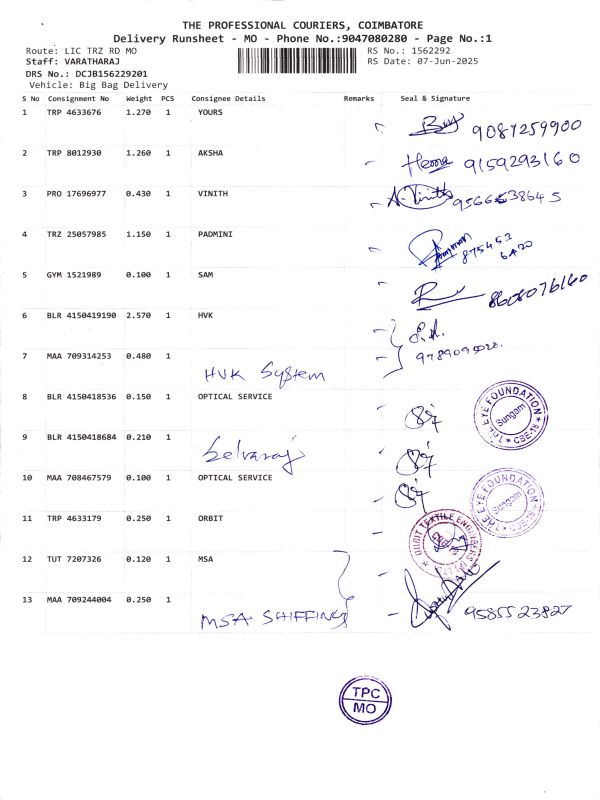 THE PROFESSIONAL COURIERS, COIMBATORE
Delivery Runsheet - MO - Phone No.:9047080280 - Page No.:1
Route: LIC TRZ RD MO RS No.: 1562292
Staff: VARATHARAJ RS Date: 07-Jun-2025
DRS No.: DCJB156229201
Vehicle: Big Bag Delivery
S No Consignment No Weight PCS Consignee Details Remarks Seal & Signature
1 TRP 4633676 1.270 1 YOURS
9087259900
2 TRP 8012930 1.260 1 AKSHA
Hema 9159293160
3 PRO 17696977 0.430 1 VINITH
A. Vinith
4 TRZ 25057985 1.150 1 PADMINI
5 GYM 1521989 0.100 1 SAM
8608076160
6 BLR 4150419190 2.570 1 HVK
7 MAA 709314253 0.480 1
HVK System
8 BLR 4150418536 0.150 1 OPTICAL SERVICE
THE EYE FOUNDATION
Sungam
CBE-18
9 BLR 4150418684 0.210 1
Selvaraj
10 MAA 708467579 0.100 1 OPTICAL SERVICE
THE EYE FOUNDATION
Sungam
CBE-18
11 TRP 4633179 0.250 1 ORBIT
ORBIT TEXTILE ENGINEERS
12 TUT 7207326 0.120 1 MSA
13 MAA 709244004 0.250 1
MSA SHIFFING 9585523827
TPC
MO